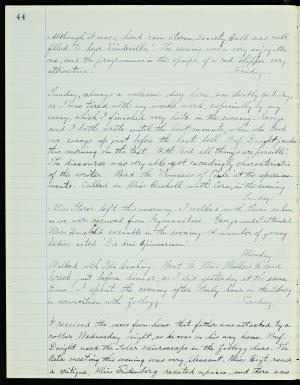 44
Although it was a hard rain storm, Society Hall was well
filled to hear 'Cinderella'. The evening was a very enjoyable
one, and the programmes in the shape of a red slipper very
attractive. Friday.
Sunday, always a welcome day here, was doubly so to-day,
as I was tired with my week's work, especially by my
essay, which I finished very late in the evening. George
and I both wrote until the last minute, when she took
our essays up just before the last bell. Prof. Dwight
this morning on the text, "With God all things are possible".
The discourse was very able and exceedingly characteristic
of the writer. Read the 'Princess of Thule' at the
Called on Miss Haskell with Cora, in the evening.
Sunday.
Miss left this morning. I walked with
as we were excused from Gymnastics. George and I attended
Miss sociable in the evening. A number of young
ladies acted 'Die drei
Monday.
Walked with Ida Cushing. Went to Miss to read
Greek, just before dinner, as I did yesterday at the same
time. I spent the evening after Study hour in the library
in connection with Zoölogy. Tuesday.
I received the news from home that father was attacked by a
robber Wednesday night, as he was on his way home. Prof.
Dwight used the Solar Microscope in the Zoölogy class. The
meeting this evening was very pleasant. Miss Hoyt read
a critique, Miss recited a piece, and there was